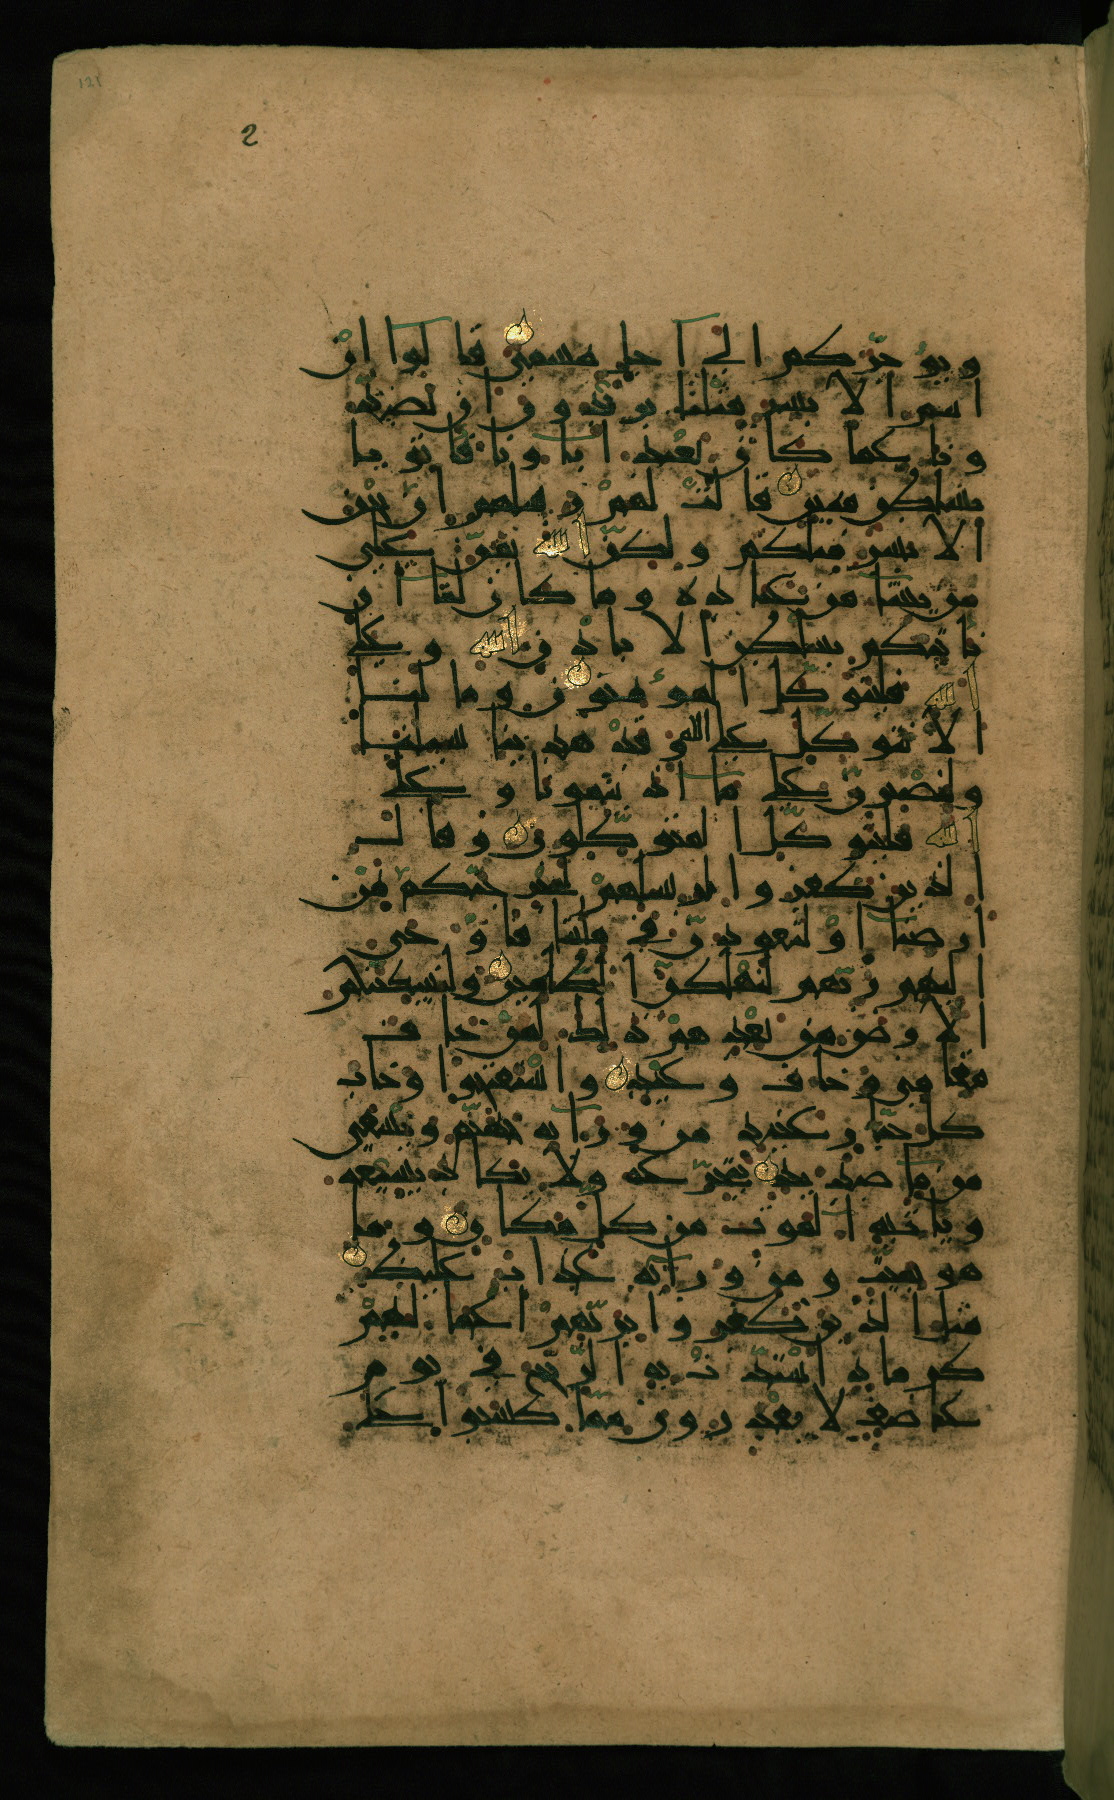 121
2
ويؤخركم الى اجل مسمى قالوا ان
انتم الا بشر مثلنا تريدون ان تصد
ونا عما كان يعبد اباونا فاتونا
بسلطن مبين قالت لهم رسلهم ان نحن
الا بشر مثلكم ولكنّ الله يمنّ على
من يشا من عباده وما كان لنا ان
ناتيكم بسلطن الا باذن الله وعلى
الله فليتوكّل المؤمنون وما لنا
الا نتوكل على الله وقد هدينا سبلنا
ولنصبرنّ على ما اذيتمونا وعلى
الله فليتوكّل المتوكّلون وقال
الذين كفروا لرسلهم لنخرجنّكم من
ارضنا او لتعودنّ في ملّتنا فاوحى
اليهم ربّهم لنهلكنّ الظلمين ولنسكننّكم
الارض من بعدهم ذلك لمن خاف
مقامي وخاف وعيد واستفتحوا وخاب
كل جبّار عنيد من ورآئه جهنّم ويسقى
من مآ صديد يتجرّعه ولا يكاد يسيغه
وياتيه الموت من كل مكان وما
هو بميّت ومن ورآئه عذاب غليظ
مثل الذين كفروا بربّهم اعملهم
كرماد اشتدّت به الرّيح في يوم
عاصف لا يقدرون ممّا كسبوا على